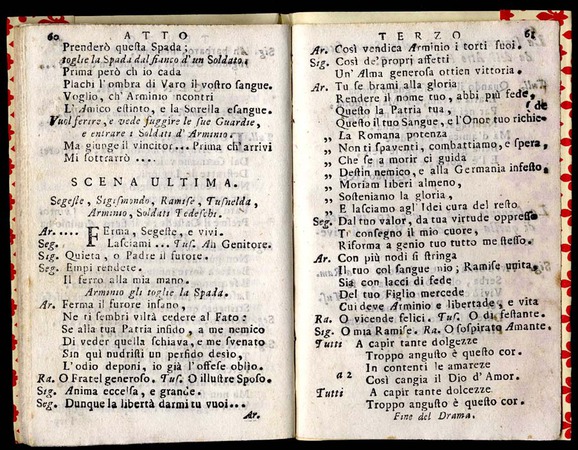 60 ATTO
Prenderò questa Spada;
toglie la Spada dal fianco d'un Soldato.
Prima però ch io cada
Plachi l'ombra di Varo il vostro sangue.
Voglio, ch' Arminio ncontri
L' Amico estinto, e la Sorella esangue.
Vuol ferire, e vede fuggire le sue Guardie,
e entrare i Soldati d'Arminio.
Ma giunge il vincitor... Prima ch'arrivi
Mi sottrarrò ....
SCENA ULTIMA.
Segeste, Sigismondo, Ramise, Tusnelda,
Arminio, Soldati Tedeschi.
Ar. .... FErma, Segeste, e vivi.
Seg. Lasciami ... Tus. Ah Genitore.
Sig. Quieta, o Padre il furore.
Seg. Empi rendete.
Il ferro alla mia mano.
Arminio gli toglie la Spada.
Ar. Ferma il furore insano,
Ne ti sembri viltà cedere al Fato:
Se alla tua Patria infido, a me nemico
Di veder quella schiava, e me svenato
Sin quì nudristi un perfido desìo,
L'odio deponi, io già l'offese oblio.
Ra. O Fratel generoso. Tus. O illustre Sposo.
Sig. Anima eccelsa, e grande.
Seg. Dunque la libertà darmi tu vuoi...
Ar.
TERZO 61
Ar. Così vendica Arminio i torti suoi.
Sig. Così de' propri affetti
Un' Alma generosa ottien vittoria.
Ar. Tu se brami alla gloria
Rendere il nome tuo, abbi più fede,
Questo la Patria tua, (de
Questo il tuo Sangue, e l'Onor tuo richie-
„ La Romana potenza
„ Non ti spaventi, combattiamo, e spera,
„ Che se a morir ci guida
„ Destin nemico, e alla Germania infesto,
„ Moriam liberi almeno,
„ Sosteniamo la gloria,
„ E lasciamo agl' Idei cura del resto.
Seg. Dal tuo valor, da tua virtude oppresso
Ti consegno il mio cuore,
Riforma a genio tuo tutto me stesso.
Ar. Con più nodi si stringa
Il tuo col sangue mio; Ramise unita,
Sia con lacci di fede
Del tuo Figlio mercede
Cui deve Arminio e libertade, e vita
Ra. O vicende felici. Tus. O dì festante.
Sig. O mia Ramise. Ra. O sospirato Amante.
Tutti A capir tante dolgezze
Troppo angusto è questo cor.
a 2 In contenti le amareze
Così cangia il Dio d'Amor.
Tutti A capir tante dolcezze.
Troppo angusto è questo cor.
Fine del Drama.